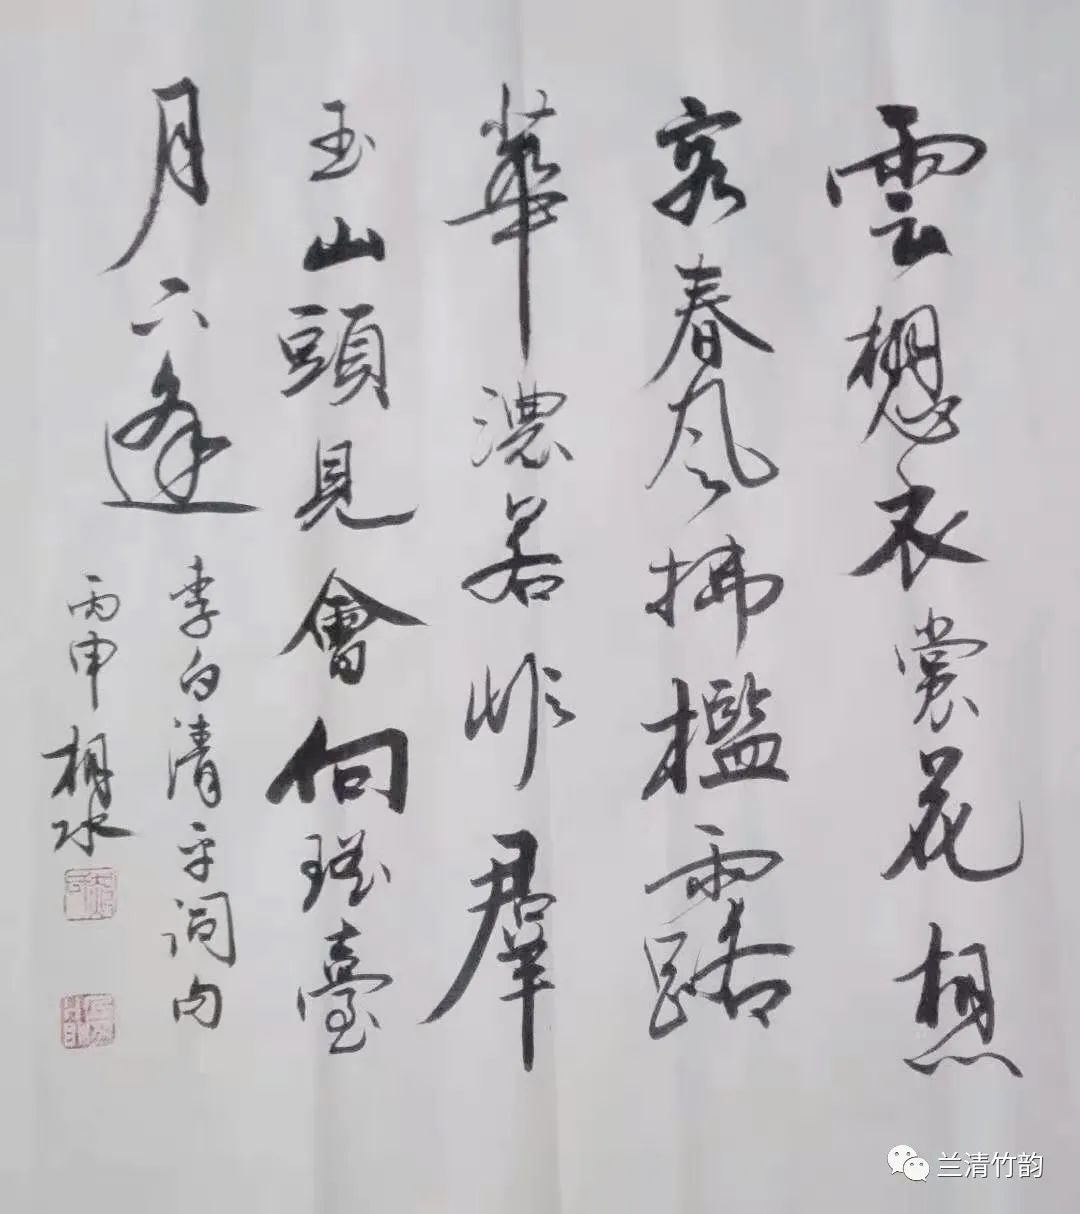 雲想衣裳花想
容春風拂檻露
華濃若非群
玉山頭見會向瑤臺
月下逢
李白清平詞句
丙申相水
兰清竹韵